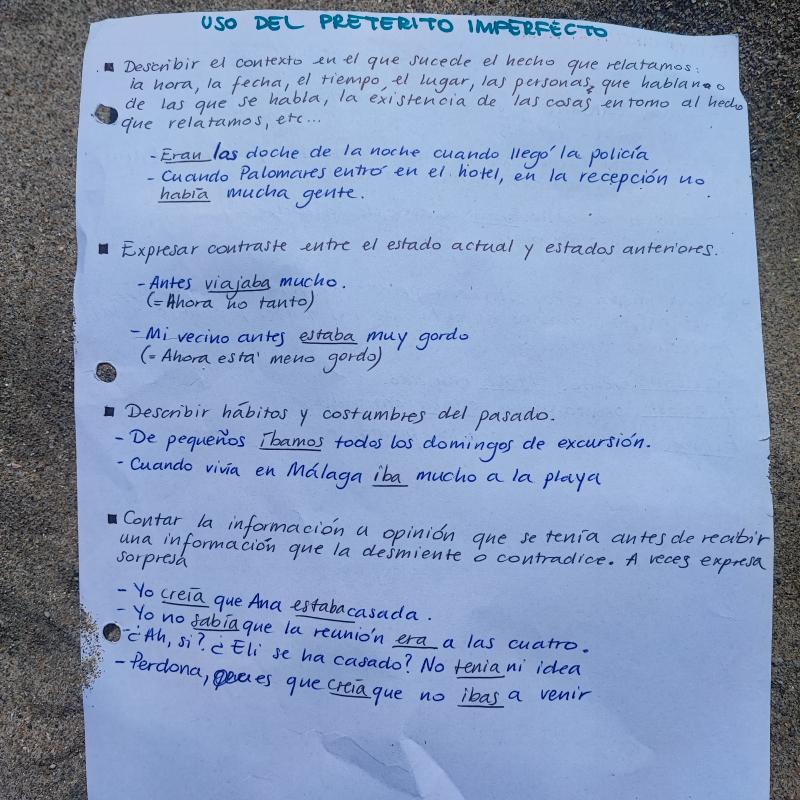 USO DEL PRETERITO IMPERFECTO
▪ Describir el contexto en el que sucede el hecho que relatamos:
la hora, la fecha, el tiempo, el lugar, las personas, que hablan o
de las que se habla, la existencia de las cosas en torno al hecho
que relatamos, etc...
- Eran las doche de la noche cuando llegó la policía
- Cuando Palomares entró en el hotel, en la recepción no
había mucha gente.
▪ Expresar contraste entre el estado actual y estados anteriores.
- Antes viajaba mucho.
(= Ahora no tanto)
- Mi vecino antes estaba muy gordo
(= Ahora está meno gordo)
▪ Describir hábitos y costumbres del pasado.
- De pequeños íbamos todos los domingos de excursión.
- Cuando vivía en Málaga iba mucho a la playa
▪ Contar la información u opinión que se tenía antes de recibir
una información que la desmiente o contradice. A veces expresa
sorpresa
- Yo creía que Ana estaba casada.
- Yo no sabía que la reunión era a las cuatro.
- ¿Ah, sí? ¿Eli se ha casado? No tenia ni idea
- Perdona, es que creía que no ibas a venir